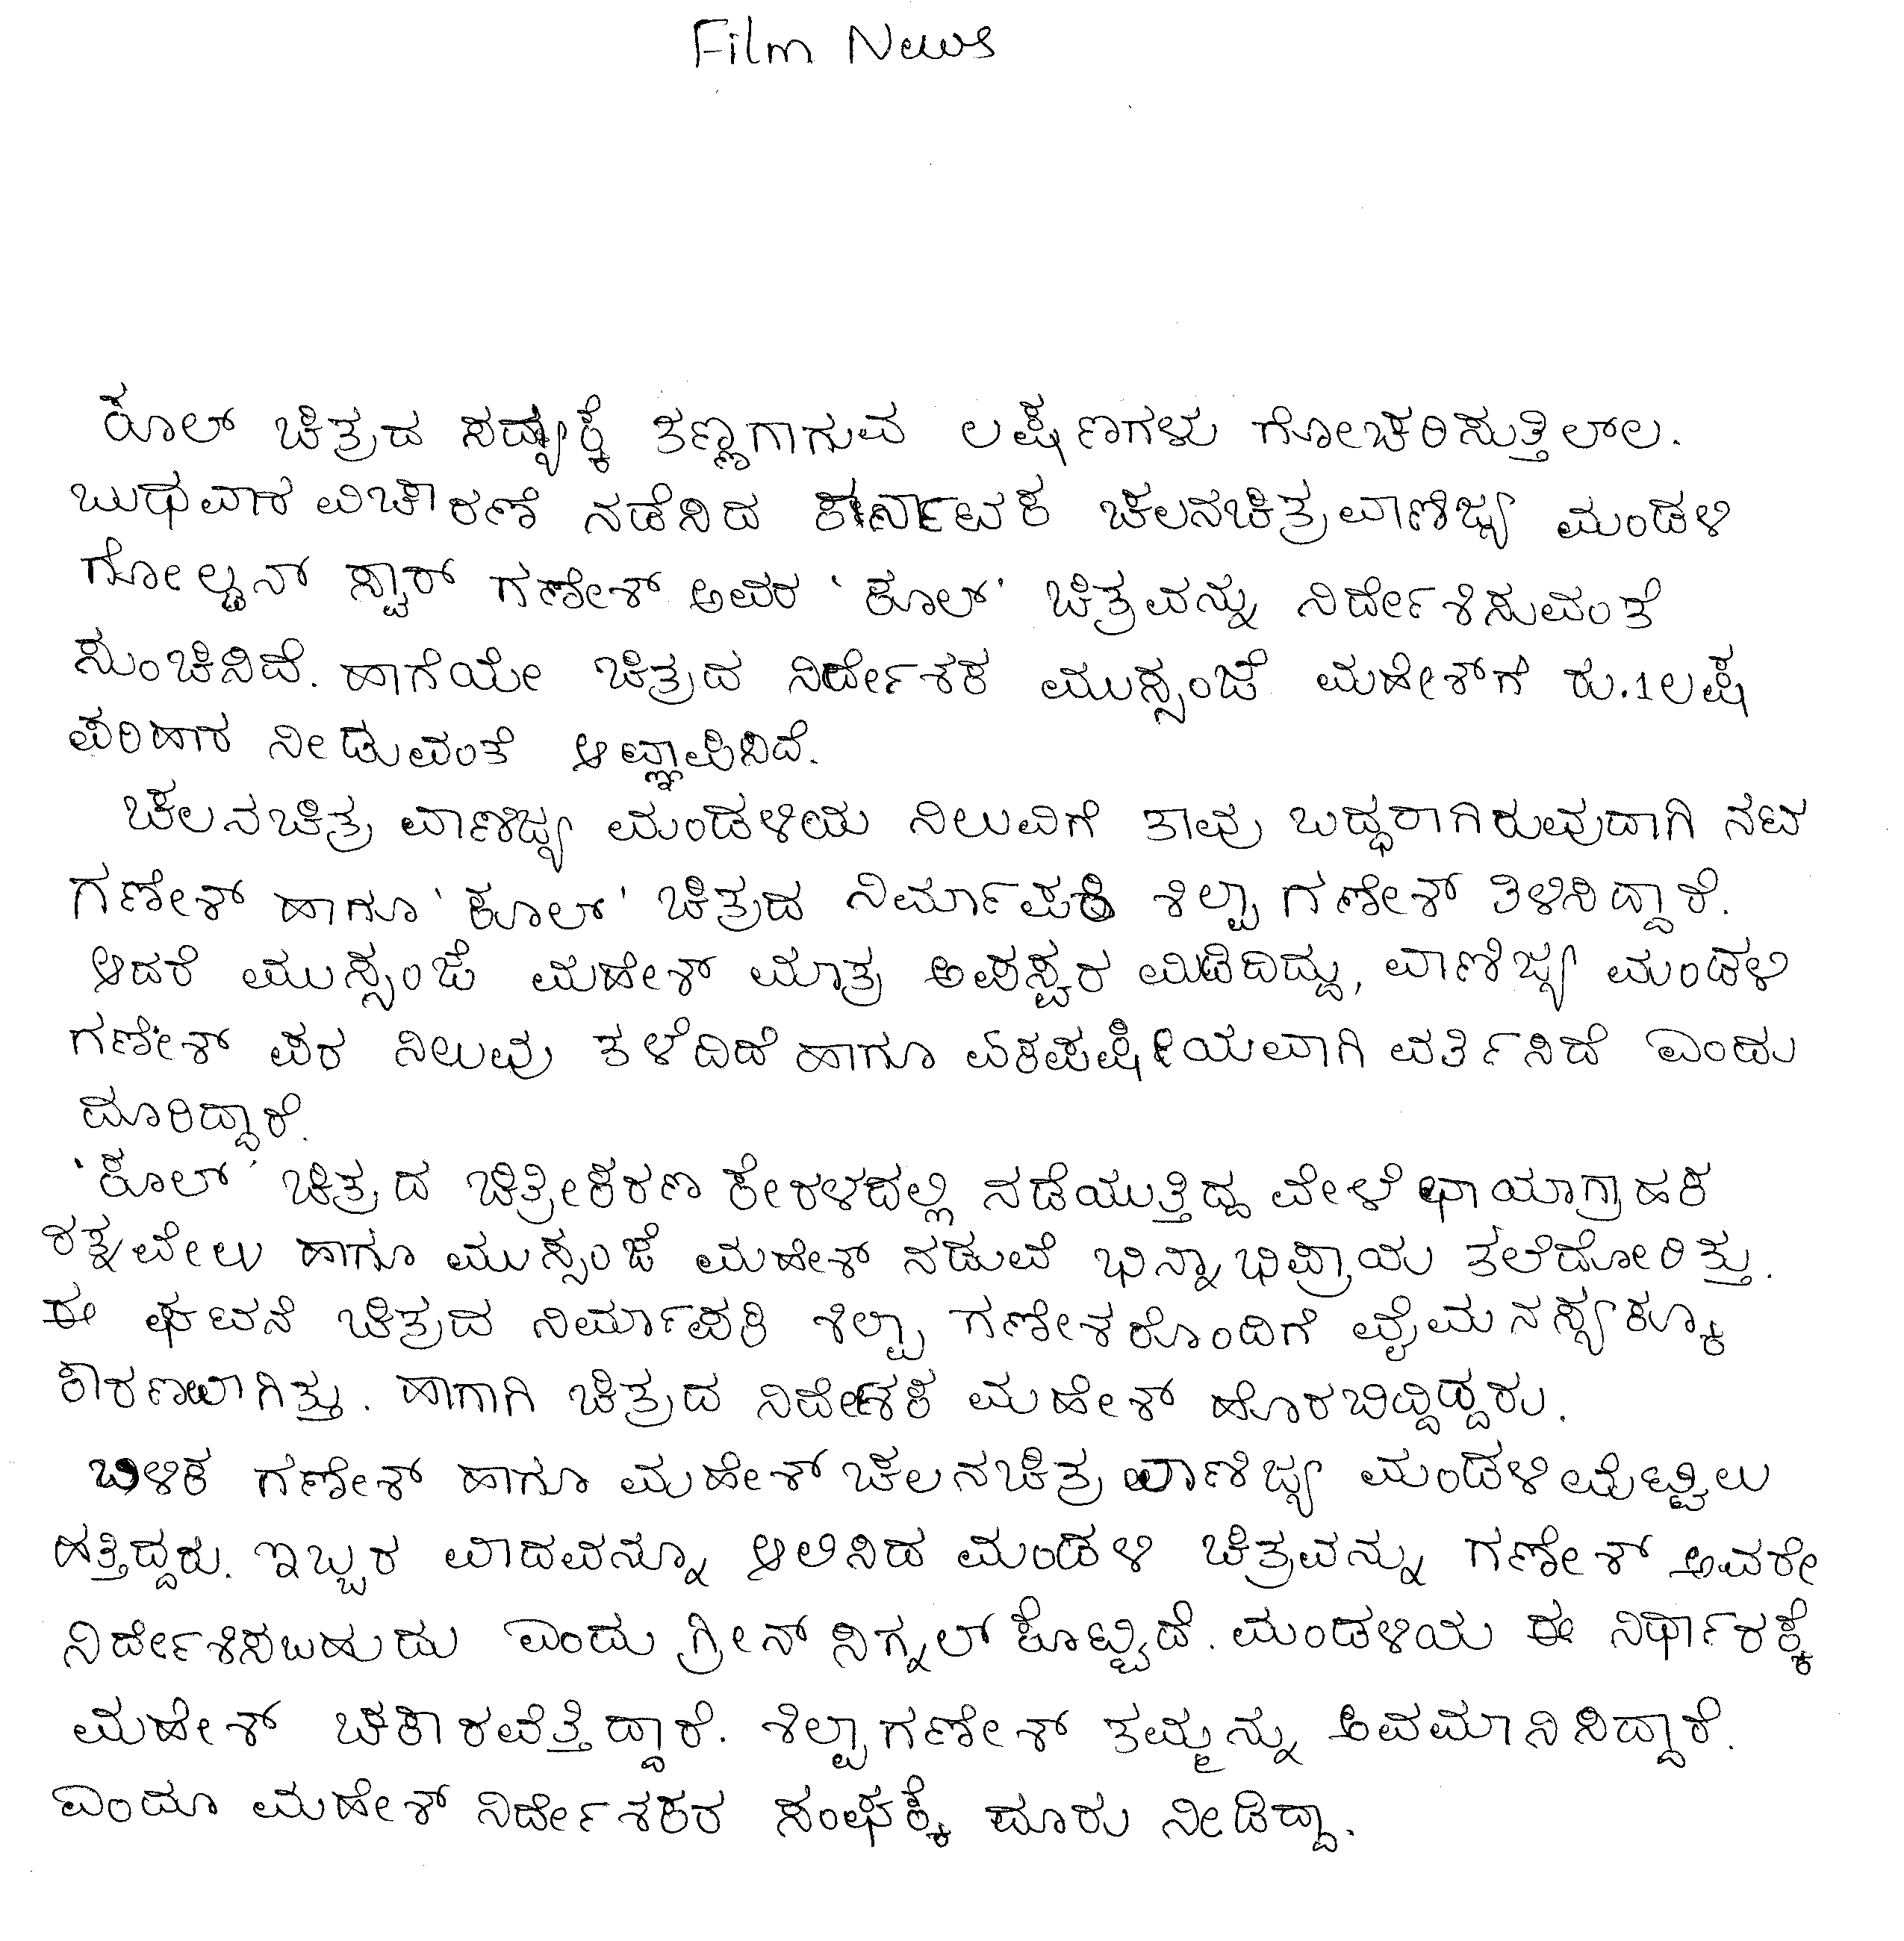 Film News
ಕೂಲ್ ಚಿತ್ರದ ಸದ್ಯಕ್ಕೆ ತಣ್ಣಗಾಗುವ ಲಕ್ಷಣಗಳು ಗೋಚರಿಸುತ್ತಿಲ್ಲ.
ಬುಧವಾರ ವಿಚಾರಣೆ ನಡೆಸಿದ ಕರ್ನಾಟಕ ಚಲನಚಿತ್ರವಾಣಿಜ್ಯ ಮಂಡಳಿ
ಗೋಲ್ಡನ್ ಸ್ಟಾರ್ ಗಣೇಶ್ ಅವರ 'ಕೂಲ್' ಚಿತ್ರವನ್ನು ನಿರ್ದೇಶಿಸುವಂತೆ
ಸುಂಚಿಸಿದೆ. ಹಾಗೆಯೇ ಚಿತ್ರದ ನಿರ್ದೇಶಕ ಮುಸ್ಸಂಜೆ ಮಹೇಶ್‌ಗೆ ರು.1ಲಕ್ಷ
ಪರಿಹಾರ ನೀಡುವಂತೆ ಆಜ್ಞಾಪಿಸಿದೆ.
ಚಲನಚಿತ್ರ ವಾಣಿಜ್ಯ ಮಂಡಳಿಯ ನಿಲುವಿಗೆ ತಾವು ಬದ್ಧರಾಗಿರುವುದಾಗಿ ನಟ
ಗಣೇಶ್ ಹಾಗೂ 'ಕೂಲ್' ಚಿತ್ರದ ನಿರ್ಮಾಪಕಿ ಶಿಲ್ಪಾ ಗಣೇಶ್ ತಿಳಿಸಿದ್ದಾರೆ.
ಆದರೆ ಮುಸ್ಸಂಜೆ ಮಹೇಶ್ ಮಾತ್ರ ಅಪಸ್ವರ ಮಿಡಿದಿದ್ದು, ವಾಣಿಜ್ಯ ಮಂಡಳಿ
ಗಣೇಶ್ ಪರ ನಿಲುವು ತಳೆದಿದೆ ಹಾಗೂ ಏಕಪಕ್ಷೀಯವಾಗಿ ವರ್ತಿಸಿದೆ ಎಂದು
ದೂರಿದ್ದಾರೆ.
'ಕೂಲ್' ಚಿತ್ರದ ಚಿತ್ರೀಕರಣ ಕೇರಳದಲ್ಲಿ ನಡೆಯುತ್ತಿದ್ದ ವೇಳೆ ಛಾಯಾಗ್ರಾಹಕ
ರತ್ನವೇಲು ಹಾಗೂ ಮುಸ್ಸಂಜೆ ಮಹೇಶ್ ನಡುವೆ ಭಿನ್ನಾಭಿಪ್ರಾಯ ತಲೆದೋರಿತ್ತು.
ಈ ಘಟನೆ ಚಿತ್ರದ ನಿರ್ಮಾಪಕಿ ಶಿಲ್ಪಾ ಗಣೇಶರೊಂದಿಗೆ ವೈಮನಸ್ಯಕ್ಕೂ
ಕಾರಣವಾಗಿತ್ತು. ಹಾಗಾಗಿ ಚಿತ್ರದ ನಿರ್ದೇಶಕ ಮಹೇಶ್ ಹೊರಬಿದ್ದಿದ್ದರು.
ಬಳಿಕ ಗಣೇಶ್ ಹಾಗೂ ಮಹೇಶ್ ಚಲನಚಿತ್ರ ವಾಣಿಜ್ಯ ಮಂಡಳಿ ಮೆಟ್ಟಿಲು
ಹತ್ತಿದ್ದರು. ಇಬ್ಬರ ವಾದವನ್ನೂ ಆಲಿಸಿದ ಮಂಡಳಿ ಚಿತ್ರವನ್ನು ಗಣೇಶ್ ಅವರೇ
ನಿರ್ದೇಶಿಸಬಹುದು ಎಂದು ಗ್ರೀನ್ ಸಿಗ್ನಲ್ ಕೊಟ್ಟಿದೆ. ಮಂಡಳಿಯ ಈ ನಿರ್ಧಾರಕ್ಕೆ
ಮಹೇಶ್ ಚಕಾರವೆತ್ತಿದ್ದಾರೆ. ಶಿಲ್ಪಾಗಣೇಶ್ ತಮ್ಮನ್ನು ಅವಮಾನಿಸಿದ್ದಾರೆ.
ಎಂದೂ ಮಹೇಶ್ ನಿರ್ದೇಶಕರ ಸಂಘಕ್ಕೆ ದೂರು ನೀಡಿದ್ದಾ.